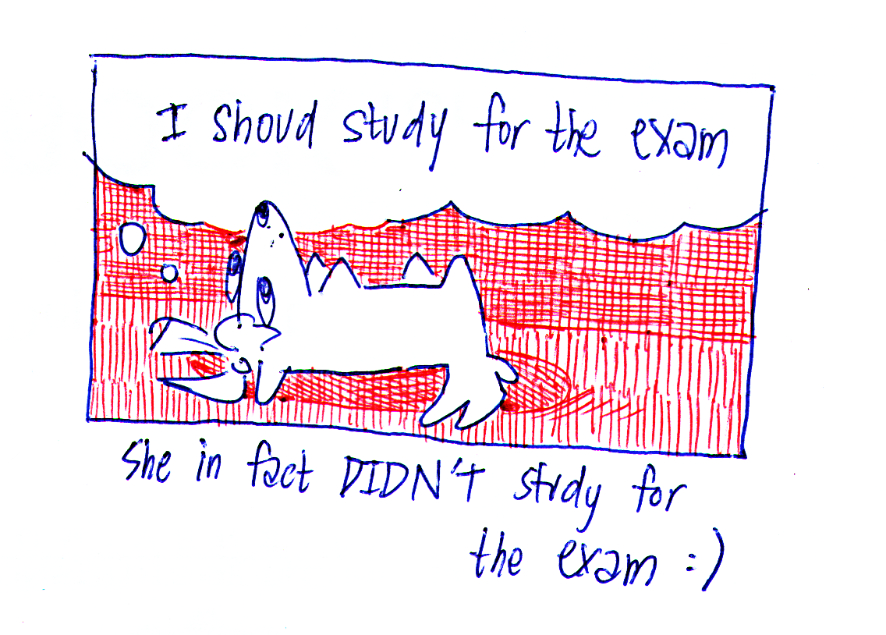 I shoud study for the exam
She in fact DIDN'T study for
the exam :)